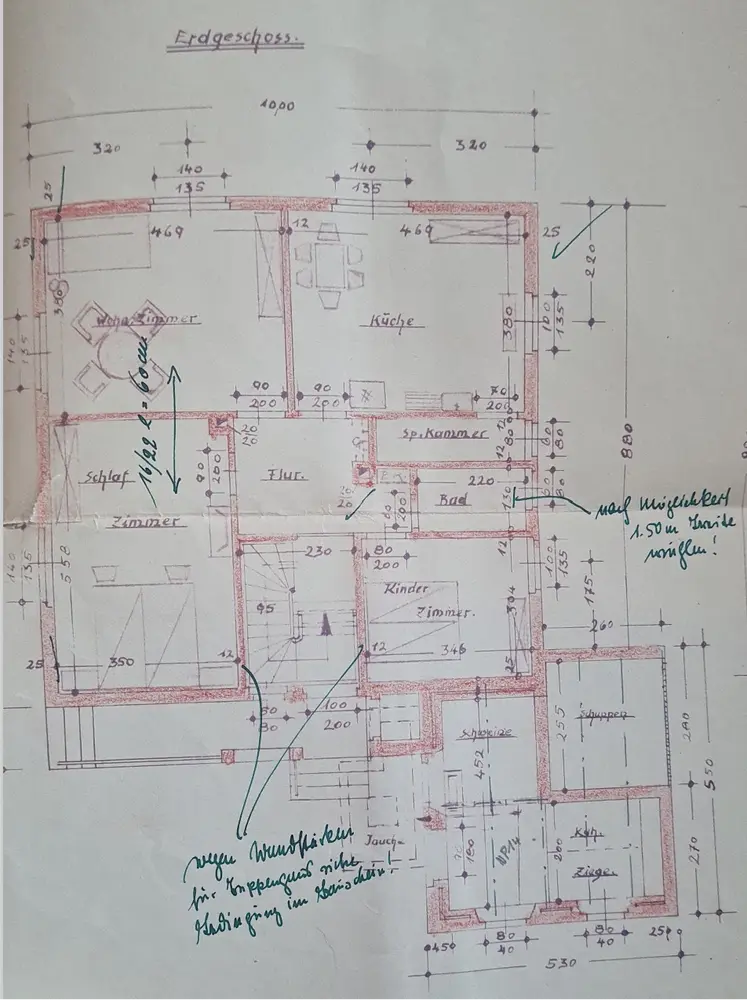 Erdgeschoss.
1000
320
320
140
135
140
135
25
25
469
12
469
25
220
380
Wohnzimmer
Küche
380
100
135
140
135
16/22 l = 60 cm
90
200
90
200
70
200
12
20
20
Sp. Kammer
80
60
80
880
Schlaf
Zimmer
90
200
Flur.
12
220
Bad
130
nach Möglichkeit
1.50 m
60
200
140
135
558
230
80
200
12
100
135
175
Kinder
Zimmer.
304
95
260
25
350
12
12
346
25
60
80
100
200
Schuppen
255
280
550
Schweine
452
Jauche
150
260
Kuh.
Ziege.
270
wegen Wandstärken
für Treppenhaus siehe
Bedingung im Bauschein!
450
80
40
80
40
250
530